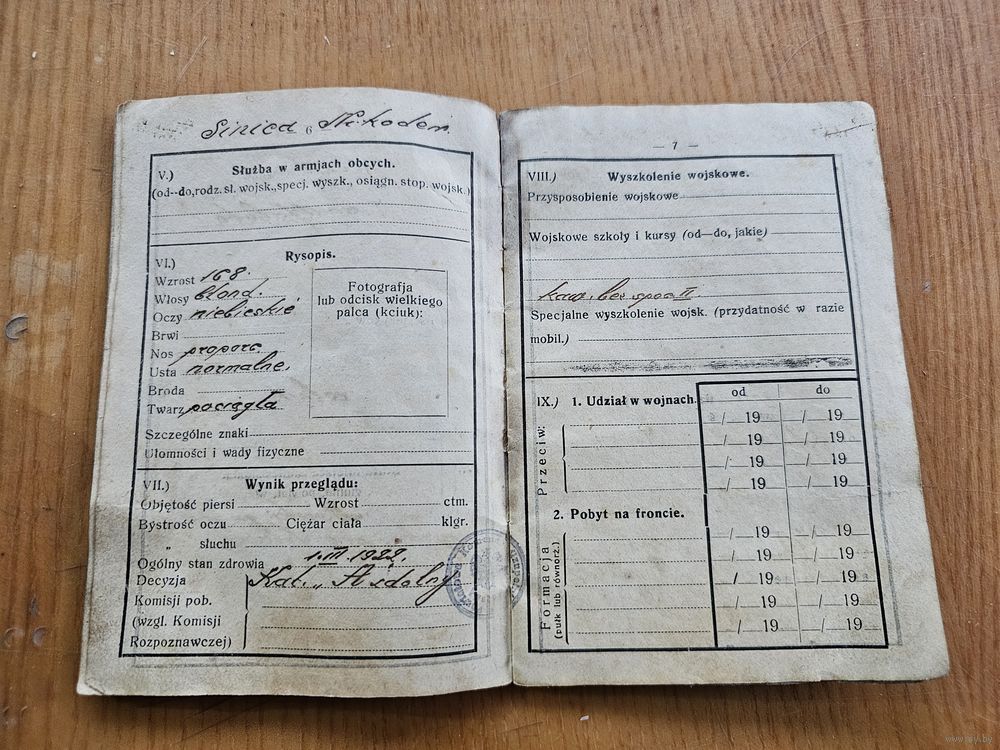 Sinica Nikodem
6
V.) Służba w armjach obcych.
(od--do, rodz. sł. wojsk., specj. wyszk., osiągn. stop. wojsk.)
VI.) Rysopis.
Wzrost 168.
Włosy blond.
Oczy niebieskie
Brwi
Nos proporc.
Usta normalne.
Broda
Twarz pociągła
Fotografja
lub odcisk wielkiego
palca (kciuk):
Szczególne znaki
Ułomności i wady fizyczne
VII.) Wynik przeglądu:
Objętość piersi Wzrost ctm.
Bystrość oczu Ciężar ciała klgr.
„ słuchu
Ogólny stan zdrowia 1.III.1922.
Decyzja Kat. „A zdolny
Komisji pob.
(wzgl. Komisji
Rozpoznawczej)
— 7 —
VIII.) Wyszkolenie wojskowe.
Przysposobienie wojskowe
Wojskowe szkoły i kursy (od—do, jakie)
kaw. bez spec II
Specjalne wyszkolenie wojsk. (przydatność w razie
mobil.)
IX.) 1. Udział w wojnach.
od do
Przeciw:
/ 19 / 19
/ 19 / 19
/ 19 / 19
/ 19 / 19
2. Pobyt na froncie.
Formacja
(pułk lub równorz.)
/ 19 / 19
/ 19 / 19
/ 19 / 19
/ 19 / 19
/ 19 / 19
www.ay.by